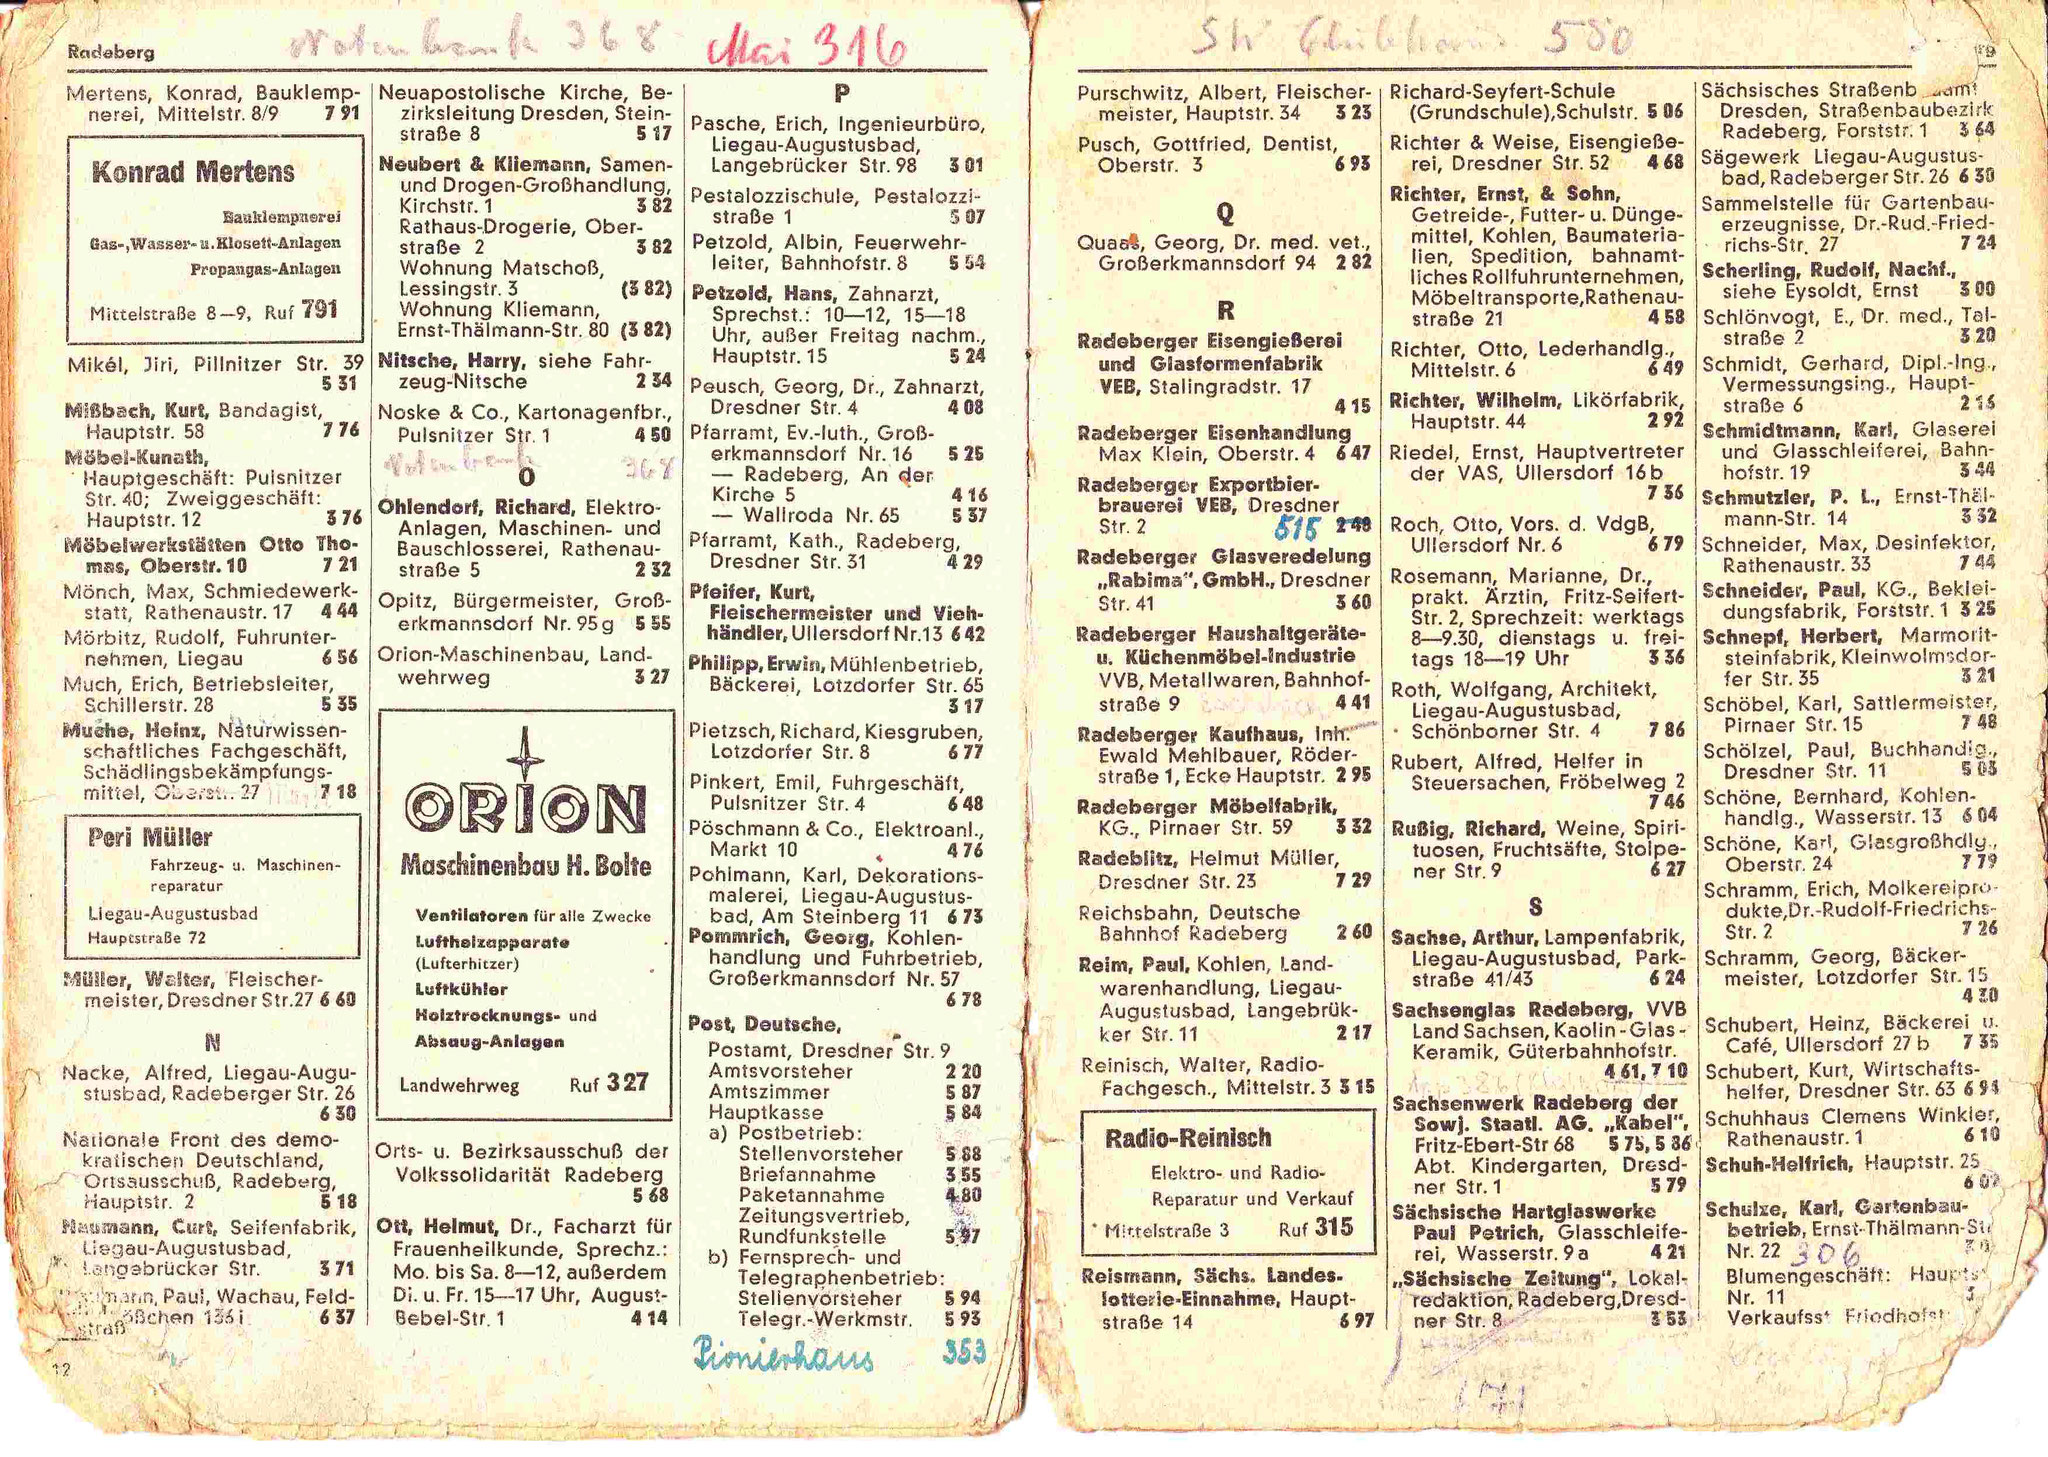 Radeberg
Notenbank 368
Mai 316
Mertens, Konrad, Bauklemp-
nerei, Mittelstr. 8/9 7 91
Konrad Mertens
Bauklempnerei
Gas-, Wasser- u. Klosett-Anlagen
Propangas-Anlagen
Mittelstraße 8—9, Ruf 791
Mikél, Jiri, Pillnitzer Str. 39
5 31
Mißbach, Kurt, Bandagist,
Hauptstr. 58 7 76
Möbel-Kunath,
Hauptgeschäft: Pulsnitzer
Str. 40; Zweiggeschäft:
Hauptstr. 12 3 76
Möbelwerkstätten Otto Tho-
mas, Oberstr. 10 7 21
Mönch, Max, Schmiedewerk-
statt, Rathenaustr. 17 4 44
Mörbitz, Rudolf, Fuhrunter-
nehmen, Liegau 6 56
Much, Erich, Betriebsleiter,
Schillerstr. 28 5 35
Muche, Heinz, Naturwissen-
schaftliches Fachgeschäft,
Schädlingsbekämpfungs-
mittel, Oberstr. 27 7 18
Peri Müller
Fahrzeug- u. Maschinen-
reparatur
Liegau-Augustusbad
Hauptstraße 72
Müller, Walter, Fleischer-
meister, Dresdner Str. 27 6 60
N
Nacke, Alfred, Liegau-Augu-
stusbad, Radeberger Str. 26
6 30
Nationale Front des demo-
kratischen Deutschland,
Ortsausschuß, Radeberg,
Hauptstr. 2 5 18
Naumann, Curt, Seifenfabrik,
Liegau-Augustusbad,
Langebrücker Str. 3 71
mann, Paul, Wachau, Feld-
ößchen 136i 6 37
straß
12
Neuapostolische Kirche, Be-
zirksleitung Dresden, Stein-
straße 8 5 17
Neubert & Kliemann, Samen-
und Drogen-Großhandlung,
Kirchstr. 1 3 82
Rathaus-Drogerie, Ober-
straße 2 3 82
Wohnung Matschoß,
Lessingstr. 3 (3 82)
Wohnung Kliemann,
Ernst-Thälmann-Str. 80 (3 82)
Nitsche, Harry, siehe Fahr-
zeug-Nitsche 2 34
Noske & Co., Kartonagenfbr.,
Pulsnitzer Str. 1 4 50
Notenbank 368
O
Ohlendorf, Richard, Elektro-
Anlagen, Maschinen- und
Bauschlosserei, Rathenau-
straße 5 2 32
Opitz, Bürgermeister, Groß-
erkmannsdorf Nr. 95g 5 55
Orion-Maschinenbau, Land-
wehrweg 3 27
ORION
Maschinenbau H. Bolte
Ventilatoren für alle Zwecke
Luftheizapparate
(Lufterhitzer)
Luftkühler
Holztrocknungs- und
Absaug-Anlagen
Landwehrweg Ruf 327
Orts- u. Bezirksausschuß der
Volkssolidarität Radeberg
5 68
Ott, Helmut, Dr., Facharzt für
Frauenheilkunde, Sprechz.:
Mo. bis Sa. 8—12, außerdem
Di. u. Fr. 15—17 Uhr, August-
Bebel-Str. 1 4 14
P
Pasche, Erich, Ingenieurbüro,
Liegau-Augustusbad,
Langebrücker Str. 98 3 01
Pestalozzischule, Pestalozzi-
straße 1 5 07
Petzold, Albin, Feuerwehr-
leiter, Bahnhofstr. 8 5 54
Petzold, Hans, Zahnarzt,
Sprechst.: 10—12, 15—18
Uhr, außer Freitag nachm.,
Hauptstr. 15 5 24
Peusch, Georg, Dr., Zahnarzt,
Dresdner Str. 4 4 08
Pfarramt, Ev.-luth., Groß-
erkmannsdorf Nr. 16 5 25
— Radeberg, An der
Kirche 5 4 16
— Wallroda Nr. 65 5 37
Pfarramt, Kath., Radeberg,
Dresdner Str. 31 4 29
Pfeifer, Kurt,
Fleischermeister und Vieh-
händler, Ullersdorf Nr. 13 6 42
Philipp, Erwin, Mühlenbetrieb,
Bäckerei, Lotzdorfer Str. 65
3 17
Pietzsch, Richard, Kiesgruben,
Lotzdorfer Str. 8 6 77
Pinkert, Emil, Fuhrgeschäft,
Pulsnitzer Str. 4 6 48
Pöschmann & Co., Elektroanl.,
Markt 10 4 76
Pohlmann, Karl, Dekorations-
malerei, Liegau-Augustus-
bad, Am Steinberg 11 6 73
Pommrich, Georg, Kohlen-
handlung und Fuhrbetrieb,
Großerkmannsdorf Nr. 57
6 78
Post, Deutsche,
Postamt, Dresdner Str. 9
Amtsvorsteher 2 20
Amtszimmer 5 87
Hauptkasse 5 84
a) Postbetrieb:
Stellenvorsteher 5 88
Briefannahme 3 55
Paketannahme 4 80
Zeitungsvertrieb,
Rundfunkstelle 5 97
b) Fernsprech- und
Telegraphenbetrieb:
Stellenvorsteher 5 94
Telegr.-Werkmstr. 5 93
Pionierhaus 353
580
Purschwitz, Albert, Fleischer-
meister, Hauptstr. 34 3 23
Pusch, Gottfried, Dentist,
Oberstr. 3 6 93
Q
Quaas, Georg, Dr. med. vet.,
Großerkmannsdorf 94 2 82
R
Radeberger Eisengießerei
und Glasformenfabrik
VEB, Stalingradstr. 17
4 15
Radeberger Eisenhandlung
Max Klein, Oberstr. 4 6 47
Radeberger Exportbier-
brauerei VEB, Dresdner
Str. 2 515 2 48
Radeberger Glasveredelung
„Rabima“, GmbH., Dresdner
Str. 41 3 60
Radeberger Haushaltgeräte-
u. Küchenmöbel-Industrie
VVB, Metallwaren, Bahnhof-
straße 9 4 41
Radeberger Kaufhaus, Inh.
Ewald Mehlbauer, Röder-
straße 1, Ecke Hauptstr. 2 95
Radeberger Möbelfabrik,
KG., Pirnaer Str. 59 3 32
Radeblitz, Helmut Müller,
Dresdner Str. 23 7 29
Reichsbahn, Deutsche
Bahnhof Radeberg 2 60
Reim, Paul, Kohlen, Land-
warenhandlung, Liegau-
Augustusbad, Langebrük-
ker Str. 11 2 17
Reinisch, Walter, Radio-
Fachgesch., Mittelstr. 3 3 15
Radio-Reinisch
Elektro- und Radio-
Reparatur und Verkauf
Mittelstraße 3 Ruf 315
Reismann, Sächs. Landes-
lotterie-Einnahme, Haupt-
straße 14 6 97
Richard-Seyfert-Schule
(Grundschule), Schulstr. 5 06
Richter & Weise, Eisengieße-
rei, Dresdner Str. 52 4 68
Richter, Ernst, & Sohn,
Getreide-, Futter- u. Dünge-
mittel, Kohlen, Baumateria-
lien, Spedition, bahnamt-
liches Rollfuhrunternehmen,
Möbeltransporte, Rathenau-
straße 21 4 58
Richter, Otto, Lederhandlg.,
Mittelstr. 6 6 49
Richter, Wilhelm, Likörfabrik,
Hauptstr. 44 2 92
Riedel, Ernst, Hauptvertreter
der VAS, Ullersdorf 16 b
7 36
Roch, Otto, Vors. d. VdgB,
Ullersdorf Nr. 6 6 79
Rosemann, Marianne, Dr.,
prakt. Ärztin, Fritz-Seifert-
Str. 2, Sprechzeit: werktags
8—9.30, dienstags u. frei-
tags 18—19 Uhr 3 36
Roth, Wolfgang, Architekt,
Liegau-Augustusbad,
Schönborner Str. 4 7 86
Rubert, Alfred, Helfer in
Steuersachen, Fröbelweg 2
7 46
Rußig, Richard, Weine, Spiri-
tuosen, Fruchtsäfte, Stolpe-
ner Str. 9 6 27
S
Sachse, Arthur, Lampenfabrik,
Liegau-Augustusbad, Park-
straße 41/43 6 24
Sachsenglas Radeberg, VVB
Land Sachsen, Kaolin-Glas-
Keramik, Güterbahnhofstr.
4 61, 7 10
Sachsenwerk Radeberg der
Sowj. Staatl. AG. „Kabel“,
Fritz-Ebert-Str 68 5 75, 5 86
Abt. Kindergarten, Dresd-
ner Str. 1 5 79
Sächsische Hartglaswerke
Paul Petrich, Glasschleife-
rei, Wasserstr. 9a 4 21
„Sächsische Zeitung“, Lokal-
redaktion, Radeberg, Dresd-
ner Str. 8 3 53
671
Sächsisches Straßenb amt
Dresden, Straßenbaubezirk
Radeberg, Forststr. 1 3 64
Sägewerk Liegau-Augustus-
bad, Radeberger Str. 26 6 30
Sammelstelle für Gartenbau-
erzeugnisse, Dr.-Rud.-Fried-
richs-Str. 27 7 24
Scherling, Rudolf, Nachf.,
siehe Eysoldt, Ernst 3 00
Schlönvogt, E., Dr. med., Tal-
straße 2 3 20
Schmidt, Gerhard, Dipl.-Ing.,
Vermessungsing., Haupt-
straße 6 2 16
Schmidtmann, Karl, Glaserei
und Glasschleiferei, Bahn-
hofstr. 19 3 44
Schmutzler, P. L., Ernst-Thäl-
mann-Str. 14 3 32
Schneider, Max, Desinfektor,
Rathenaustr. 33 7 44
Schneider, Paul, KG., Beklei-
dungsfabrik, Forststr. 1 3 25
Schnepf, Herbert, Marmorit-
steinfabrik, Kleinwolmsdor-
fer Str. 35 3 21
Schöbel, Karl, Sattlermeister,
Pirnaer Str. 15 7 48
Schölzel, Paul, Buchhandlg.,
Dresdner Str. 11 5 03
Schöne, Bernhard, Kohlen-
handlg., Wasserstr. 13 6 04
Schöne, Karl, Glasgroßhdlg.,
Oberstr. 24 7 79
Schramm, Erich, Molkereipro-
dukte, Dr.-Rudolf-Friedrichs-
Str. 2 7 26
Schramm, Georg, Bäcker-
meister, Lotzdorfer Str. 15
4 30
Schubert, Heinz, Bäckerei u.
Café, Ullersdorf 27 b 7 35
Schubert, Kurt, Wirtschafts-
helfer, Dresdner Str. 63 6 94
Schuhhaus Clemens Winkler,
Rathenaustr. 1 6 10
Schuh-Helfrich, Hauptstr. 25
6 02
Schulze, Karl, Gartenbau-
betrieb, Ernst-Thälmann-Str
Nr. 22 306
Blumengeschäft: Haupts
Nr. 11 3
Verkaufsst Friedhofst